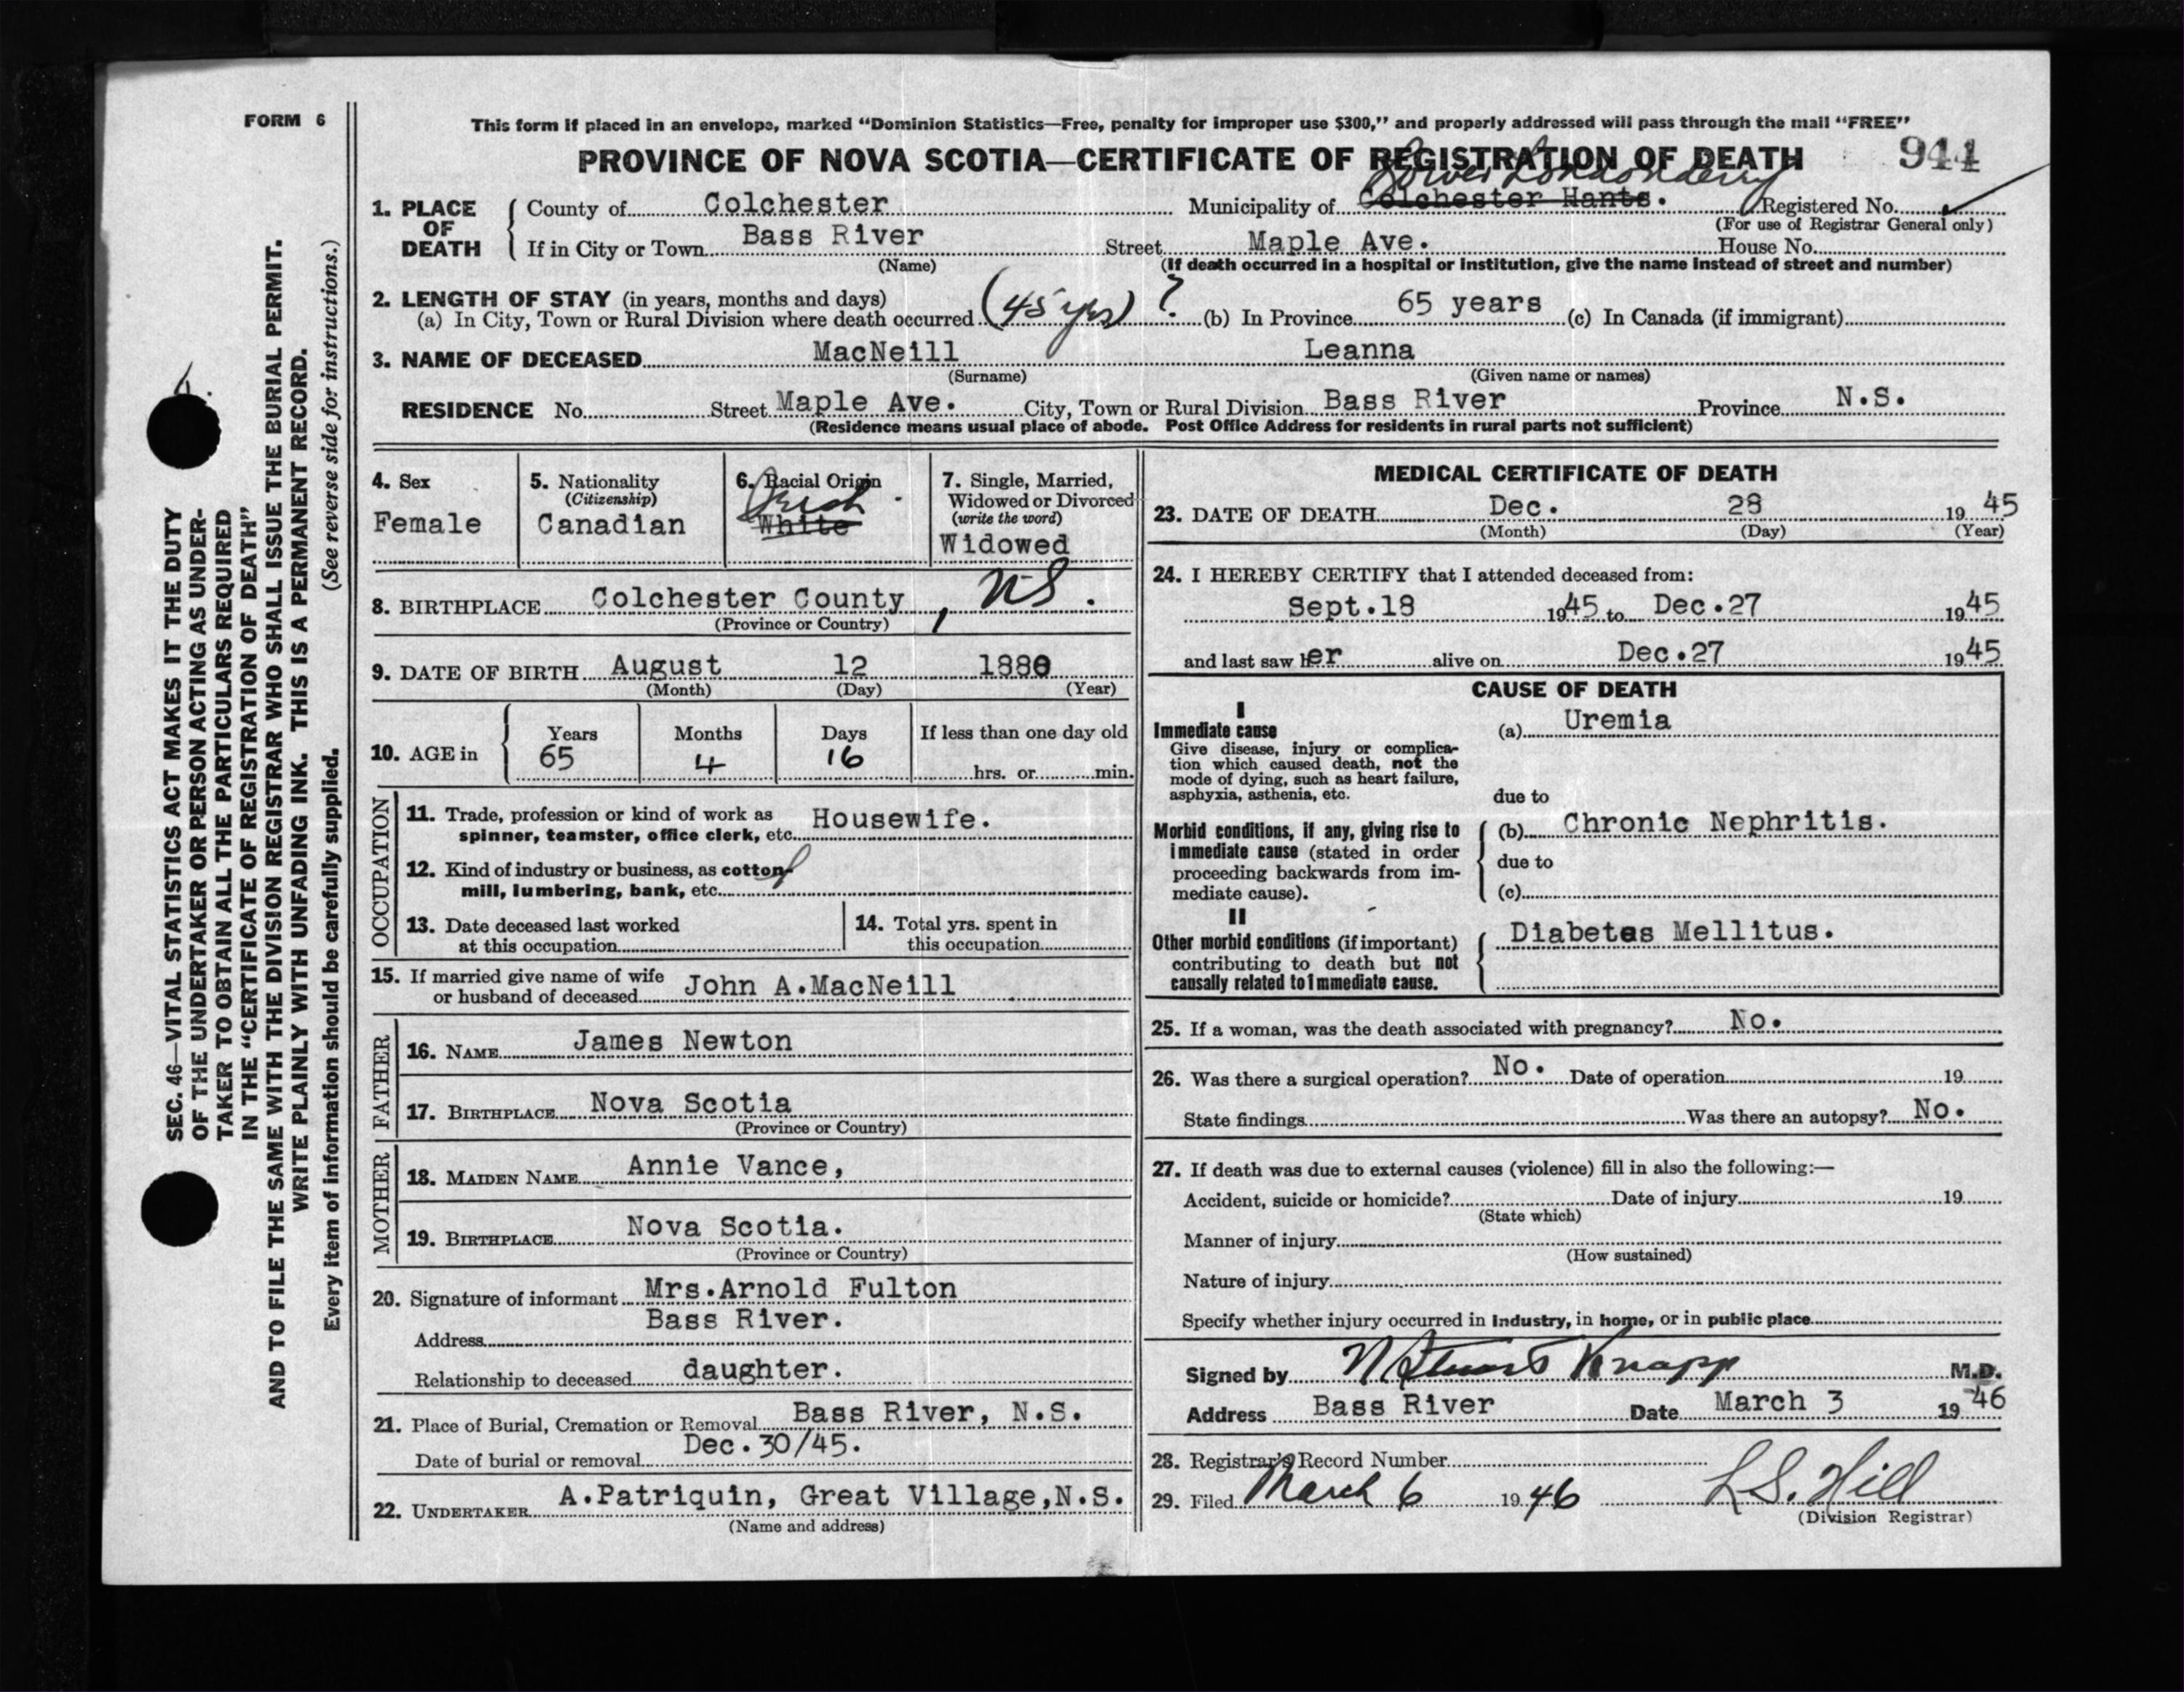 FORM 6
This form if placed in an envelope, marked “Dominion Statistics—Free, penalty for improper use $300,” and properly addressed will pass through the mail “FREE”
PROVINCE OF NOVA SCOTIA—CERTIFICATE OF REGISTRATION OF DEATH 944
Lower Londonderry
1. PLACE OF DEATH County of Colchester Municipality of Colchester Hants. Registered No.
(For use of Registrar General only)
If in City or Town Bass River Street Maple Ave. House No.
(Name) (If death occurred in a hospital or institution, give the name instead of street and number)
2. LENGTH OF STAY (in years, months and days)
(a) In City, Town or Rural Division where death occurred (45 yrs) ? (b) In Province 65 years (c) In Canada (if immigrant)
3. NAME OF DECEASED MacNeill Leanna
(Surname) (Given name or names)
RESIDENCE No. Street Maple Ave. City, Town or Rural Division Bass River Province N.S.
(Residence means usual place of abode. Post Office Address for residents in rural parts not sufficient)
4. Sex
Female
5. Nationality
(Citizenship)
Canadian
6. Racial Origin
Irish
White
7. Single, Married,
Widowed or Divorced
(write the word)
Widowed
8. BIRTHPLACE Colchester County, NS.
(Province or Country)
9. DATE OF BIRTH August 12 1880
(Month) (Day) (Year)
10. AGE in Years Months Days If less than one day old
65 4 16 hrs. or min.
OCCUPATION
11. Trade, profession or kind of work as
spinner, teamster, office clerk, etc. Housewife.
12. Kind of industry or business, as cotton
mill, lumbering, bank, etc.
13. Date deceased last worked
at this occupation
14. Total yrs. spent in
this occupation
15. If married give name of wife
or husband of deceased John A.MacNeill
FATHER
16. NAME James Newton
17. BIRTHPLACE Nova Scotia
(Province or Country)
MOTHER
18. MAIDEN NAME Annie Vance,
19. BIRTHPLACE Nova Scotia.
(Province or Country)
20. Signature of informant Mrs.Arnold Fulton
Address Bass River.
Relationship to deceased daughter.
21. Place of Burial, Cremation or Removal Bass River, N.S.
Date of burial or removal Dec.30/45.
22. UNDERTAKER A.Patriquin, Great Village,N.S.
(Name and address)
MEDICAL CERTIFICATE OF DEATH
23. DATE OF DEATH Dec. 28 1945
(Month) (Day) (Year)
24. I HEREBY CERTIFY that I attended deceased from:
Sept.18 1945 to Dec.27 1945
and last saw her alive on Dec.27 1945
CAUSE OF DEATH
I
Immediate cause (a) Uremia
Give disease, injury or complica-
tion which caused death, not the
mode of dying, such as heart failure,
asphyxia, asthenia, etc.
due to
Morbid conditions, if any, giving rise to
immediate cause (stated in order
proceeding backwards from im-
mediate cause).
(b) Chronic Nephritis.
due to
(c)
II
Other morbid conditions (if important)
contributing to death but not
causally related to immediate cause.
Diabetes Mellitus.
25. If a woman, was the death associated with pregnancy? No.
26. Was there a surgical operation? No. Date of operation 19
State findings Was there an autopsy? No.
27. If death was due to external causes (violence) fill in also the following:—
Accident, suicide or homicide? Date of injury 19
(State which)
Manner of injury
(How sustained)
Nature of injury
Specify whether injury occurred in industry, in home, or in public place
Signed by N Stuart Knapp M.D.
Address Bass River Date March 3 1946
28. Registrar's Record Number
29. Filed March 6 1946 L.S. Hill
(Division Registrar)
SEC. 46—VITAL STATISTICS ACT MAKES IT THE DUTY
OF THE UNDERTAKER OR PERSON ACTING AS UNDER-
TAKER TO OBTAIN ALL THE PARTICULARS REQUIRED
IN THE “CERTIFICATE OF REGISTRATION OF DEATH”
AND TO FILE THE SAME WITH THE DIVISION REGISTRAR WHO SHALL ISSUE THE BURIAL PERMIT.
WRITE PLAINLY WITH UNFADING INK. THIS IS A PERMANENT RECORD.
Every item of information should be carefully supplied. (See reverse side for instructions.)